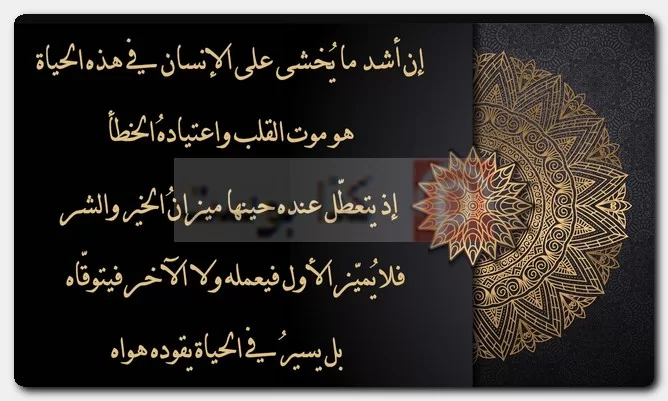 إن أشد ما يُخشى على الإنسان في هذه الحياة
هو موت القلب واعتيادهُ الخطأ
إذ يتعطّل عنده حينها ميزانُ الخير والشر
فلا يُميّز الأول فيعمله ولا الآخر فيتوقّاه
بل يسيرُ في الحياة يقوده هواه